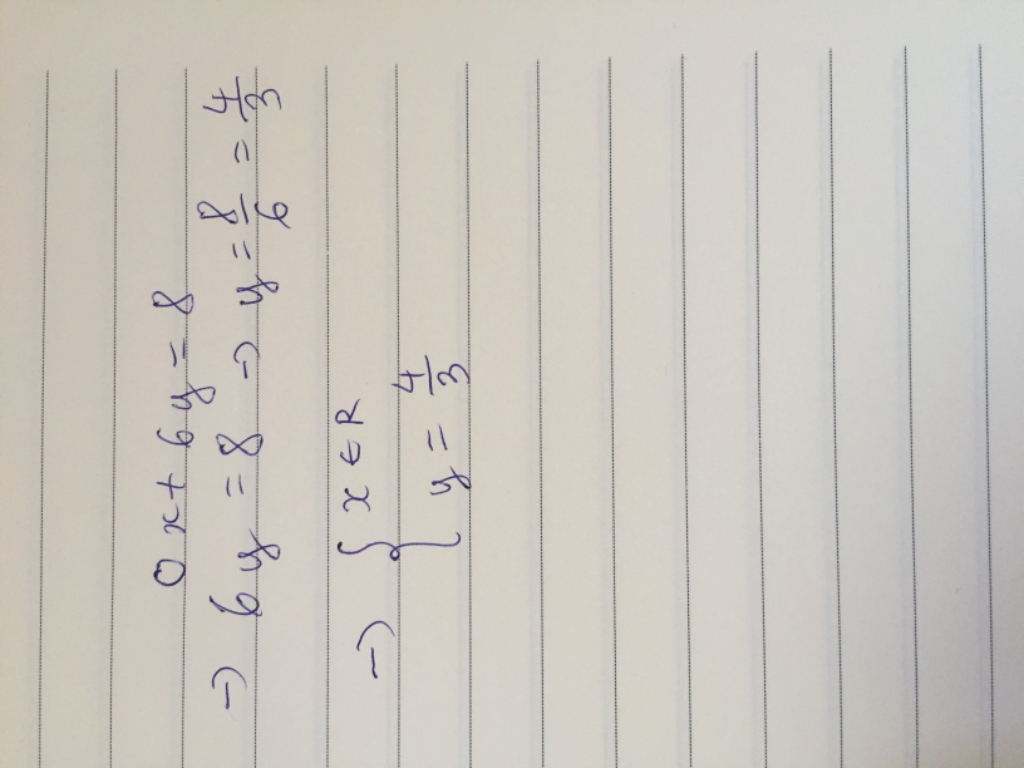 0x + 6y = 8
→ 6y = 8 → y = 8/6 = 4/3
→ { x ∈ R
y = 4/3